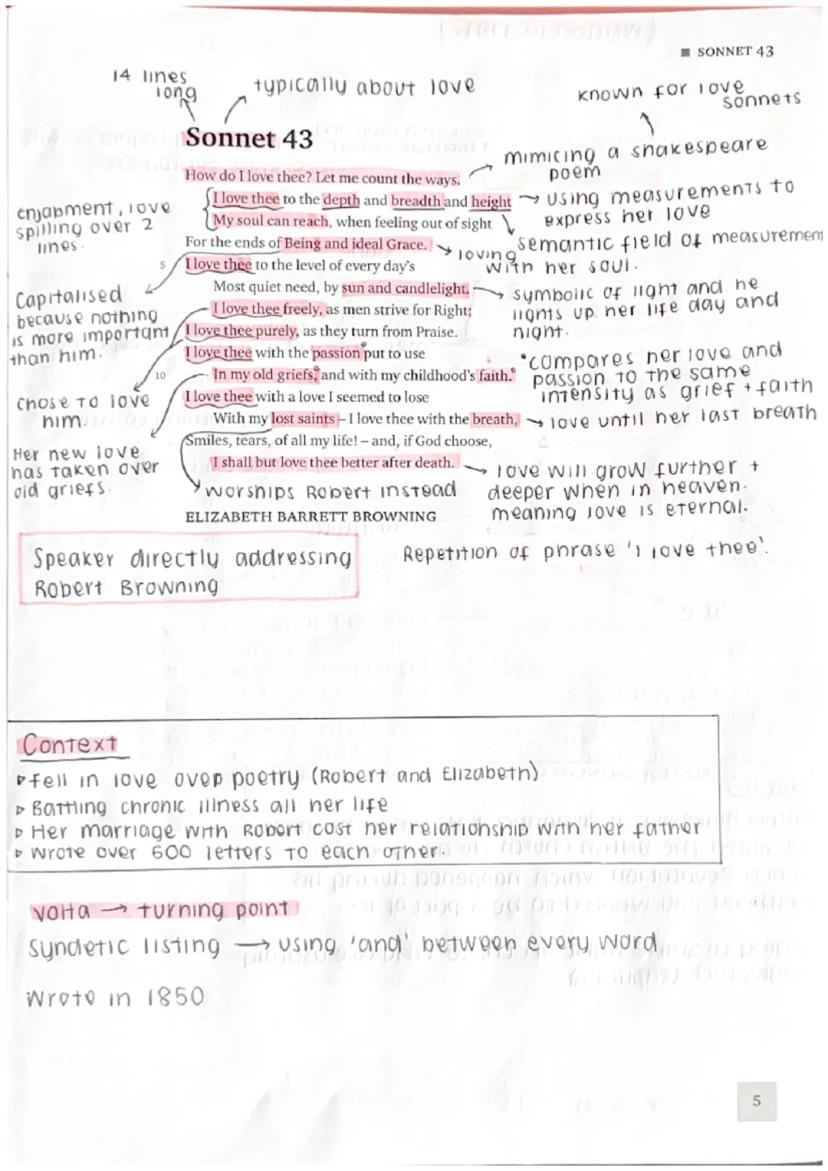 ■ SONNET 43
14 lines
long
typically about love
known for love
sonnets
Sonnet 43
mimicing a shakespeare
poem
How do I love thee? Let me count the ways.
I love thee to the depth and breadth and height
My soul can reach, when feeling out of sight
For the ends of Being and ideal Grace.
5 I love thee to the level of every day's
Most quiet need, by sun and candlelight.
I love thee freely, as men strive for Right;
I love thee purely, as they turn from Praise.
I love thee with the passion put to use
10 In my old griefs, and with my childhood's faith.
I love thee with a love I seemed to lose
With my lost saints – I love thee with the breath,
Smiles, tears, of all my life! – and, if God choose,
I shall but love thee better after death.
ELIZABETH BARRETT BROWNING
enjabment, love
spilling over 2
lines.
Capitalised
because nothing
is more important
than him.
chose to love
him.
Her new love
has taken over
old griefs.
using measurements to
express her love
semantic field of measurement
loving
with her soul.
symbolic of light and he
lights up her life day and
night.
"compares her love and
passion to the same
intensity as grief + faith
love until her last breath
love will grow further +
deeper when in heaven.
meaning love is eternal.
worships Robert instead
Repetition of phrase 'I love thee'.
Speaker directly addressing
Robert Browning
Context
fell in love over poetry (Robert and Elizabeth)
Battling chronic illness all her life
Her marriage with Robert cost her relationship with her father
wrote over 500 letters to each other.
volta → turning point
Syndetic listing → using 'and' between every word
Wrote in 1850
5